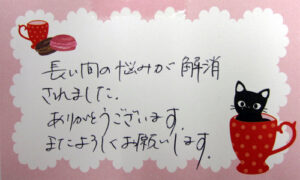 長い間の悩みが解消
されました.
ありがとうございます.
またよろしくお願いします.